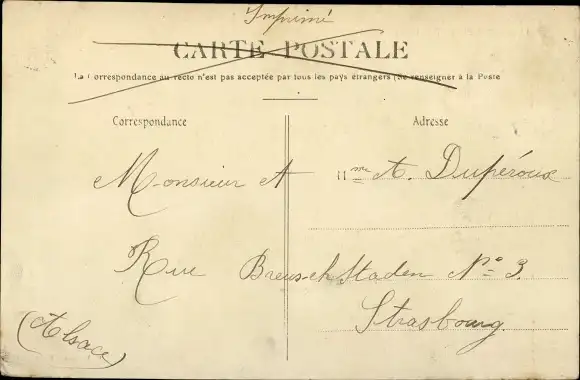 Imprimé
CARTE POSTALE
La Correspondance au recto n'est pas acceptée par tous les pays étrangers (Se renseigner à la Poste
Correspondance
Adresse
Monsieur et Mme A. Dupéroux
Rue Breuschstaden No 3.
Strasbourg.
(Alsace)